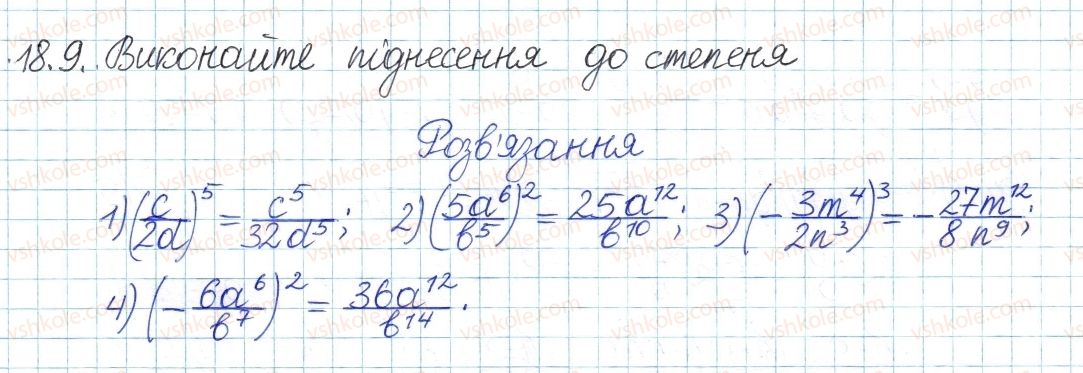 18.9. Виконайте піднесення до степеня
Розв'язання
1) (c/2d)^5 = c^5/32d^5; 2) (5a^6/b^5)^2 = 25a^12/b^10; 3) (-3m^4/2n^3)^3 = -27m^12/8n^9;
4) (-6a^6/b^7)^2 = 36a^12/b^14.